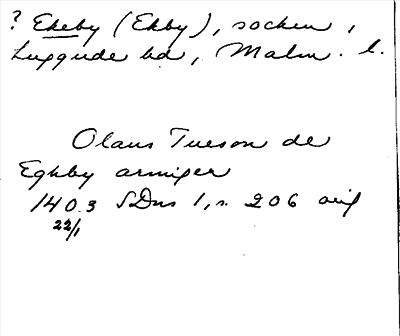 ? Ekeby (Ekby), socken,
Luggude hd, Malm. l.
Olaus Tueson de
Egkby armiger
1403 SDns 1, s. 206 orig
22/1